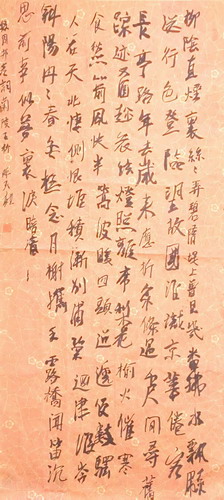 柳陰直煙裏絲〻弄碧隋堤上曾見幾番拂水飄綿
送行色登臨望故國誰識京華倦客
長亭路年去歲來應折柔條過千尺閒尋舊
蹤迹又酒趁哀絃燈照離席梨花榆火催寒
食愁一箭風快半篙波暖回頭迢遞便數驛望
人在天北悽惻恨堆積漸別浦縈迴津堠岑
寂斜陽冉〻春無極念月榭攜手露橋聞笛沉
思前事似夢裏淚暗滴
周邦彥詞蘭陵王